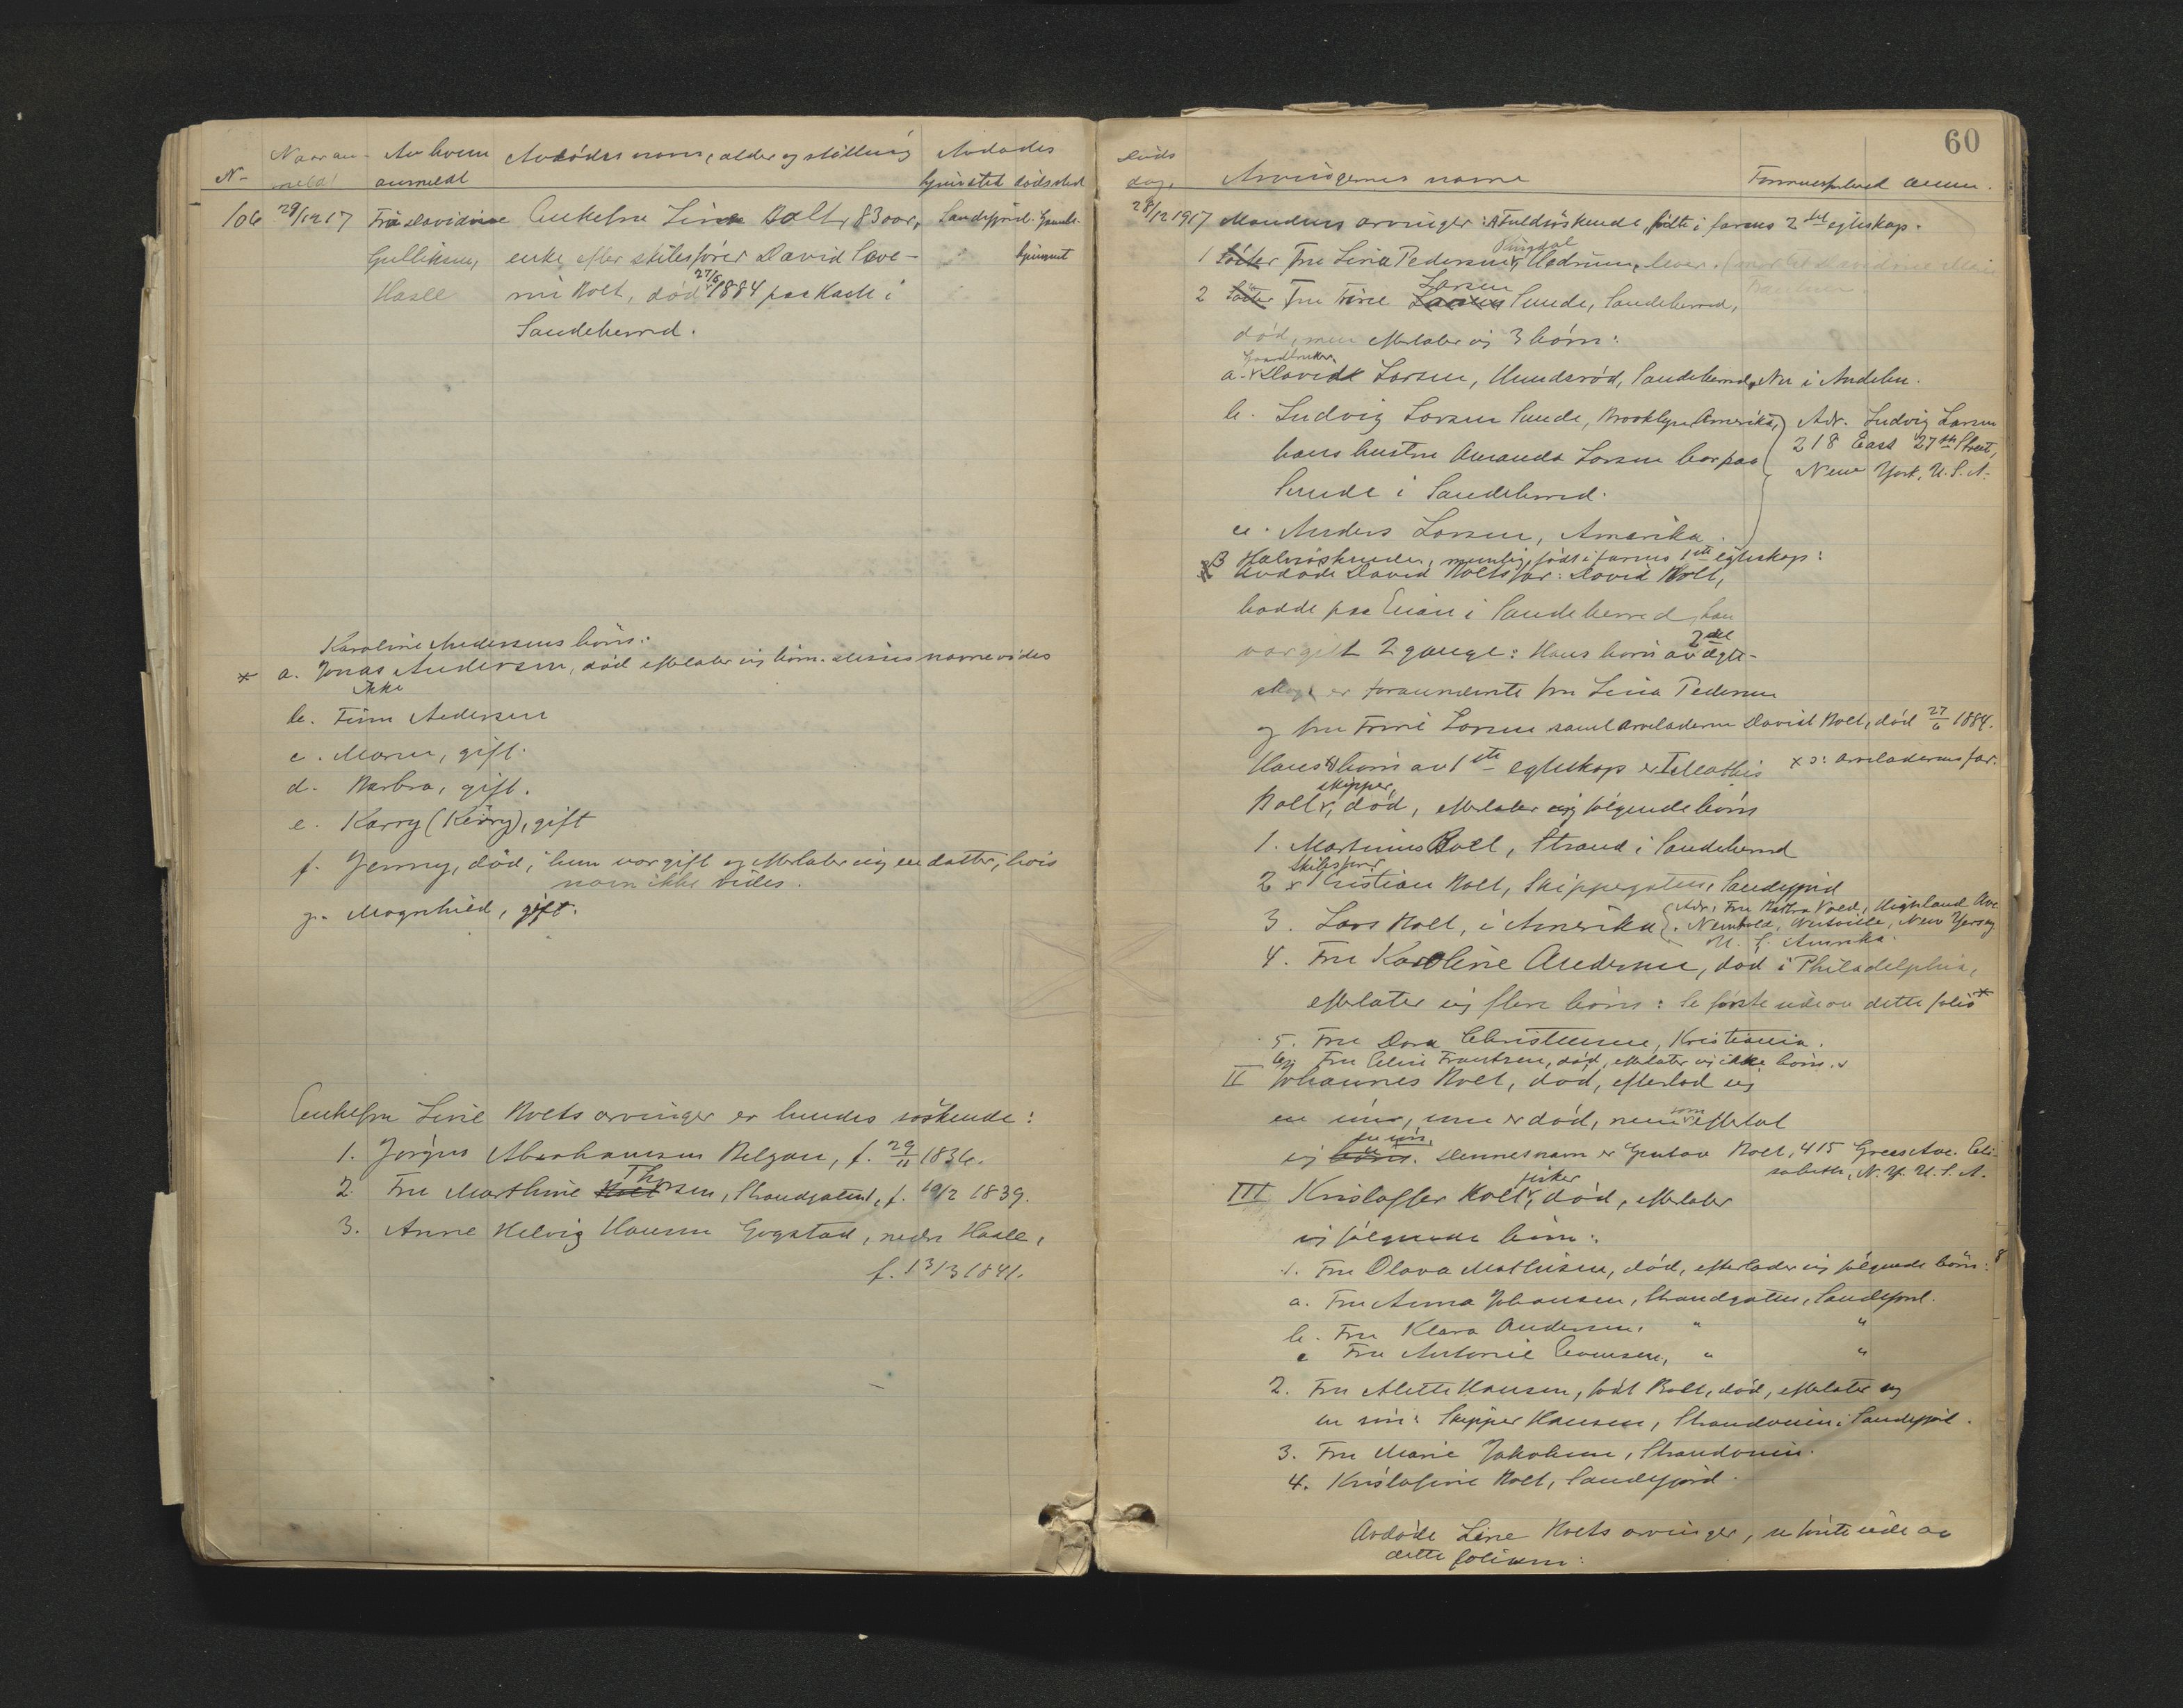 N-
Naar an-
meldt
Av hvem
anmeldt
Avdødes navn, alder og stilling
Avdødes
hjemsted
dödssted
106
29/12 17
Fru Davidine
Gulliksen,
Hasle
Enkefru Line Bolt, 83 aar,
enke efter skibsfører David Seve-
rin Holt, död 27/6 1884 paa
Sandeherred.
Sandefjord.
Gamle-
hjemmet
Karoline Andersens börn:
* a. Jonas Andersen, död efterlater sig börn. disses navne vides
ikke
b. Finn Andersen
c. Maren, gift.
d. Barbra, gift.
e. Karry (Kerry), gift
f. Jenny, död, hun var gift og efterlater sig en datter, hvis
navn ikke vides.
g. Magnhild, gift.
Enkefru Line Holts arvinger er hendes söskende:
1. Jörgen Abrahamsen Helgau, f. 29/11 1836.
2. Fru Marthine Thorsen, Strandgaten, f. 10/2 1839.
3. Anne Helvig Hansen Gogstad, nedre Hasle,
f. 13/3 1841.
60
Döds
dag.
Arvingernes navne
Formuesforhold
28/12 1917
Mandens arvinger: A Fuldsöskende, født i farens 2det egteskap.
1 Söster Fru Lina Pedersen, Ringdal Hedrum, lever.
2 Söster Fru Trine Larsen Sunde, Sandeherred,
död, men efterlater sig 3 börn:
Gaardbruker
a. David Larsen, Unnersröd, Sandeherred, Nu i Andebu.
b. Ludvig Larsen Sunde, Brooklyn Amerika,
Adr. Ludvig Larsen
218 East 27th Street,
New York, U.S.A.
hans hustru Amanda Larsen bor paa
Sunde i Sandeherred.
c. Anders Larsen, Amerika.
B Halvsöskende, nemlig födt i farens 1ste egteskap:
Avdøde David Holts far: David Holt,
bodde paa Enden i Sandeherred, han
var gift 2 gange: Hans börn av 2det egte-
skap er forannævnte fru Lina Pedersen
og fru Trine Larsen samt arveladeren David Holt, död 27/6 1884.
Hans x) börn av 1ste egteskap er I Mathis
x ɔ: arveladerens far.
skipper,
Holt, död, efterlater sig følgende börn
1. Martinius Holt, Strand i Sandeherred
Skibsfører
2 Kristian Holt, Skippergaten, Sandefjord
3. Lars Holt, i Amerika
Adr: Fru Barbra Vold, Highland Ave
Newbold, Westville, New Yersey
U. S. Amerika.
4. Fru Karoline Andersen, död i Philadelphia,
efterlater sig flere börn: Se første side av dette folio *
5. Fru Dora Christensen, Kristiania.
6. Fru Elise Frantzen, död, efterlater sig ikke börn.
II Johannes Holt, död, efterlod sig
en sön, som er död, men som efterlot
sig en sön. Dennes navn er Gustav Holt, 415 Green Ave. Eli-
sabeth, N. Y. U. S. A.
III Kristoffer Holt, fisker död, efterlater
sig følgende börn:
1. Fru Olava Mathisen, död, efterlader sig følgende börn:
a. Fru Anna Johansen, Strandgaten, Sandefjord.
b. Fru Klara Andersen, " "
c Fru Antonie Evensen, " "
2. Fru Alette Hansen, född Holt, död, efterlater sig
en sön: Skipper Hansen, Strandveien i Sandefjord.
3. Fru Marie Jakobsen, Strandveien.
4. Kristofine Holt, Sandefjord.
Avdøde Line Holts arvinger, se første side av
dette folium: